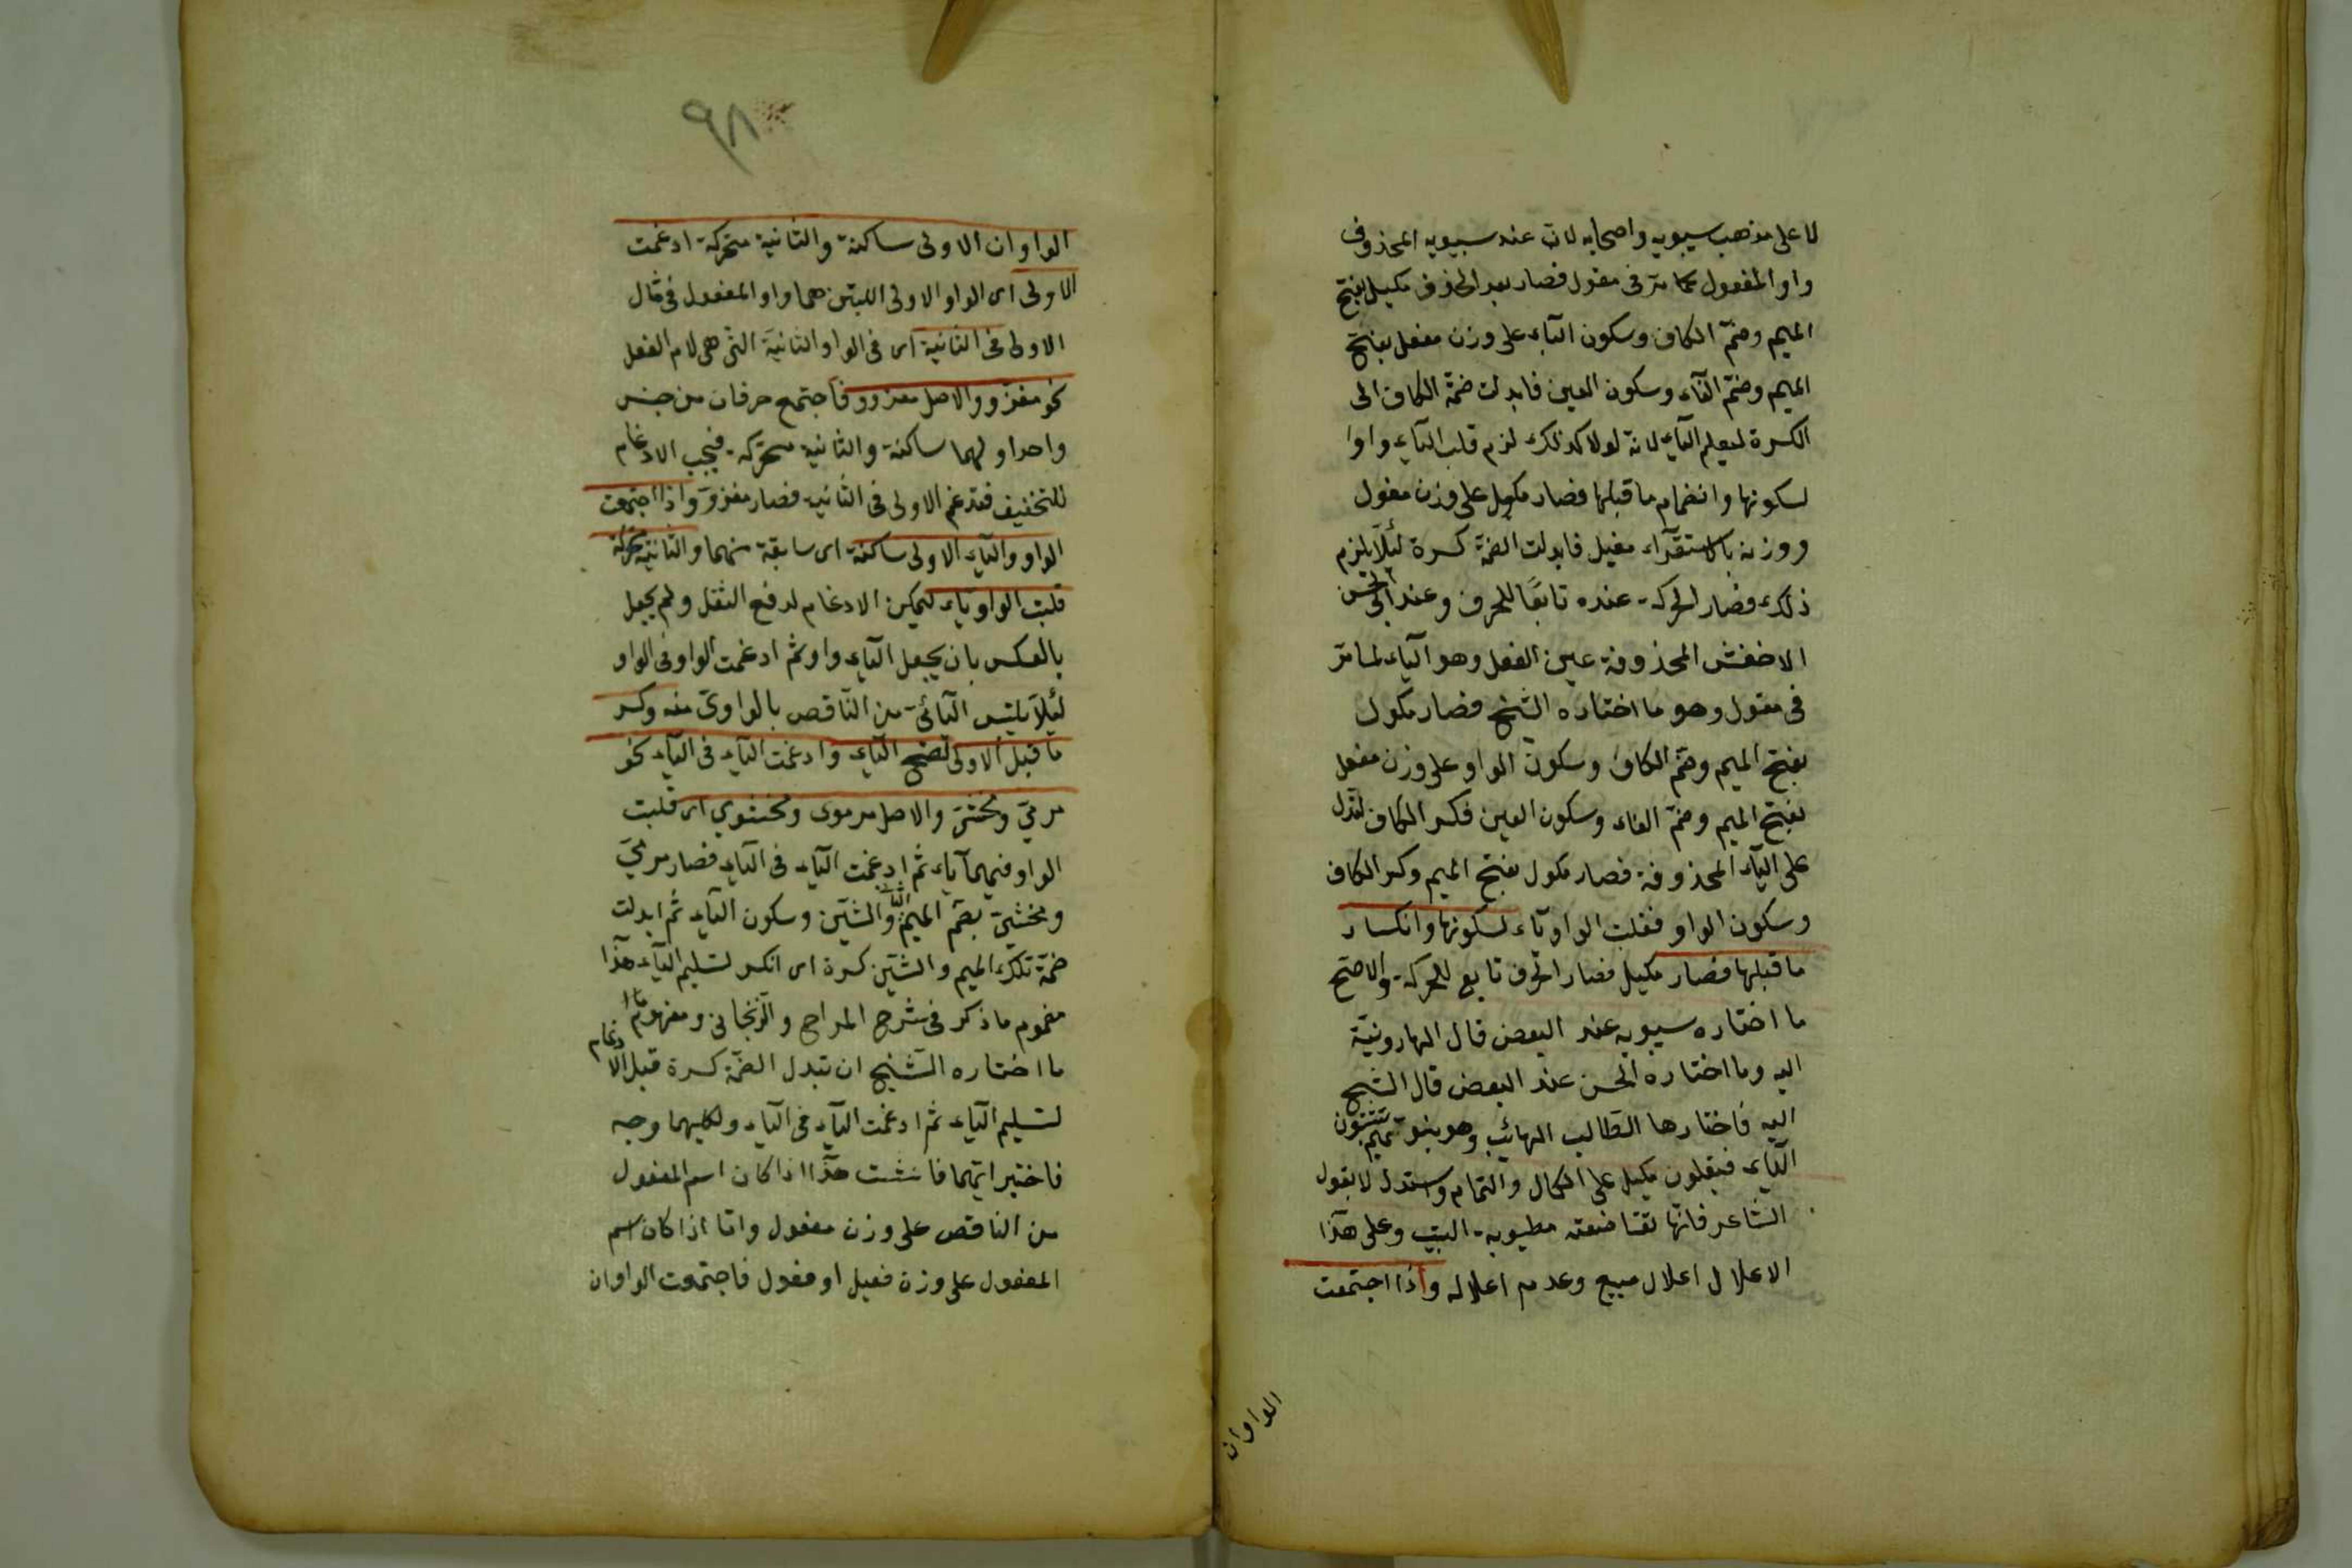 لا على مذهب سيبويه واصحابه لان عند سيبويه المحذوف
واو المفعول كما مرّ فى مقول فصار بعد الحذف مكيل بفتح
الميم وضمّ الكاف وسكون اليآء على وزن مفعل بفتح
الميم وضمّ الفآء وسكون العين فابدلت ضمّة الكاف الى
الكسرة ليعلم اليآء لانه لولا كذلك لزم قلب اليآء واوا
لسكونها وانضمام ما قبلها فصار مكول على وزن مفول
ووزنه بالاستقرآء مفيل فابدلت الضمة كسرة لئلّا يلزم
ذلك فصار الحركة عنده تابعًا للحرف وعند ابى الحسن
الاخفش المحذوفة عين الفعل وهو اليآء لما مرّ
فى مقول وهو ما اختاره الشيخ فصار مكول
بفتح الميم وضم الكاف وسكون الواو على وزن مفعل
بفتح الميم وضمّ الفاء وسكون العين فكسر الكاف لتدل
على اليآء المحذوفة فصار مكول بفتح الميم وكسر الكاف
وسكون الواو فقلبت الواو ياء لسكونها وانكسار
ما قبلها فصار مكيل فصار الحرف تابع للحركة والاصحّ
ما اختاره سيبويه عند البعض قال الهارونيّة
اليه وما اختاره الحسن عند البعض قال الشيخ
اليه فاختارها الطالب الهائب وهو بنو تميم يثبتون
اليآء فيقلون مكيل على الكمال والتمام واستدل لا بقول
الشاعر فانّها تفتا ضعته مطيوبه البيت وعلى هذا
الاعلال اعلال مبيع وعدم اعلاله واذا اجتمعت
الواوان
٩٨
الواوان الاولى ساكنة والثانية متحركة ادغمت
الاولى اى الواو الاولى اللبتين هما واو المفعول فى قال
الاولى فى الثانية اى فى الواو الثانية التى هى لام الفعل
نحو مغزوّ والاصل مغزوو فاجتمع حرفان من جنس
واحد اولهما ساكنة والثانية متحركة فيجب الادغام
للتخفيف فتدغم الاولى فى الثانية فصار مغزوّ واذا اجتمعت
الواو واليآء الاولى ساكنة اى سابقة منهما والثانية متحركة
قلبت الواو ياء ليمكن الادغام لدفع الثقل ولم يجعل
بالعكس بان يجعل اليآء واو ثم ادغمت الواو فى الواو
لئلّا يلتبس اليائى من الناقص بالواوىّ منه وكسر
ما قبل الاولى لتصحّ اليآء وادغمت اليآء فى اليآء نحو
مرمىّ ومخشىّ والاصل مرموى ومخشوى اى قلبت
الواو فيهما ياء ثم ادغمت اليآء فى اليآء فصار مرمىّ
ومخشىّ بضم الميم الثانية والشين وسكون اليآء ثم ابدلت
ضمّة تلك الميم والشين كسرة اى انكسر لتسليم اليآء هذا
مفهوم ما ذكر فى شرح المراح والزنجانى ومفهوم
ما اختاره الشيخ ان تبدل الضمّة كسرة قبل الادغام
لتسليم اليآء ثم ادغمت اليآء فى اليآء ولكليهما وجه
فاختير ايّهما فانشئت هذا اذا كان اسم المفعول
من الناقص على وزن مفعول وامّا اذا كان اسم
المفعول على وزن فعيل او فعول فاجتمعت الواوان